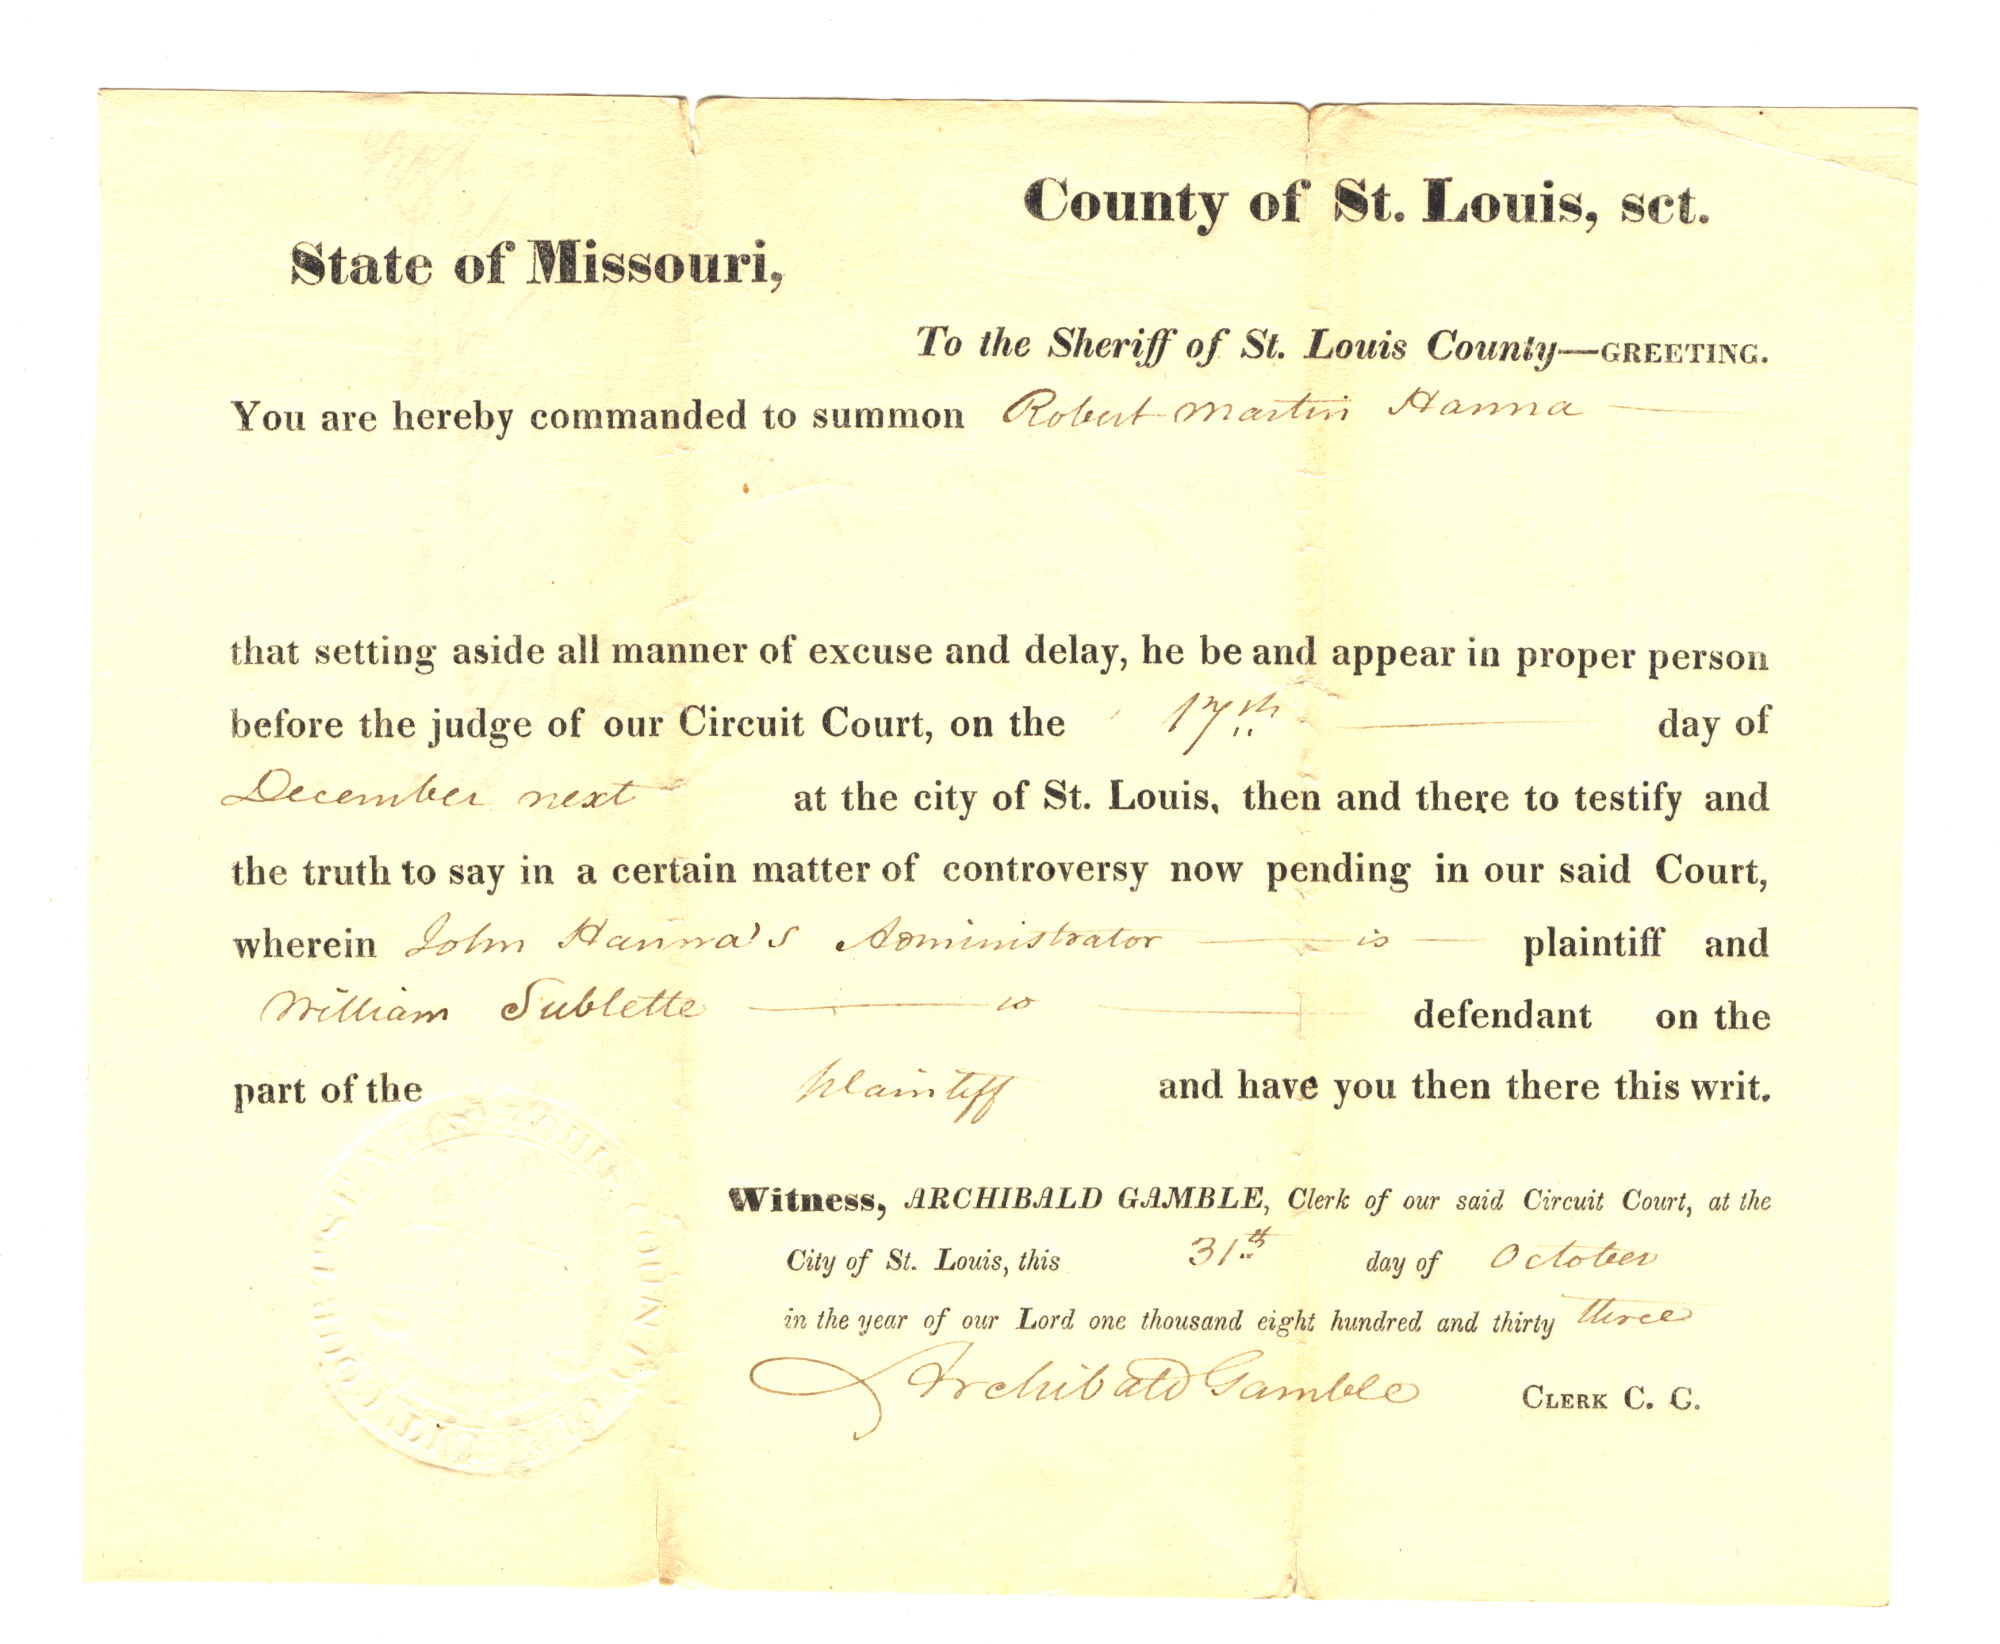 County of St. Louis, sct.
State of Missouri,
To the Sheriff of St. Louis County—GREETING.
You are hereby commanded to summon Robert Martin Hanna
that setting aside all manner of excuse and delay, he be and appear in proper person
before the judge of our Circuit Court, on the 17th day of
December next at the city of St. Louis, then and there to testify and
the truth to say in a certain matter of controversy now pending in our said Court,
wherein John Hanna's Administrator is plaintiff and
William Sublette is defendant on the
part of the plaintiff and have you then there this writ.
Witness, ARCHIBALD GAMBLE, Clerk of our said Circuit Court, at the
City of St. Louis, this 31th day of October
in the year of our Lord one thousand eight hundred and thirty three
Archibald Gamble CLERK C. C.
ST LOUIS COUNTY CIRCUIT COURT